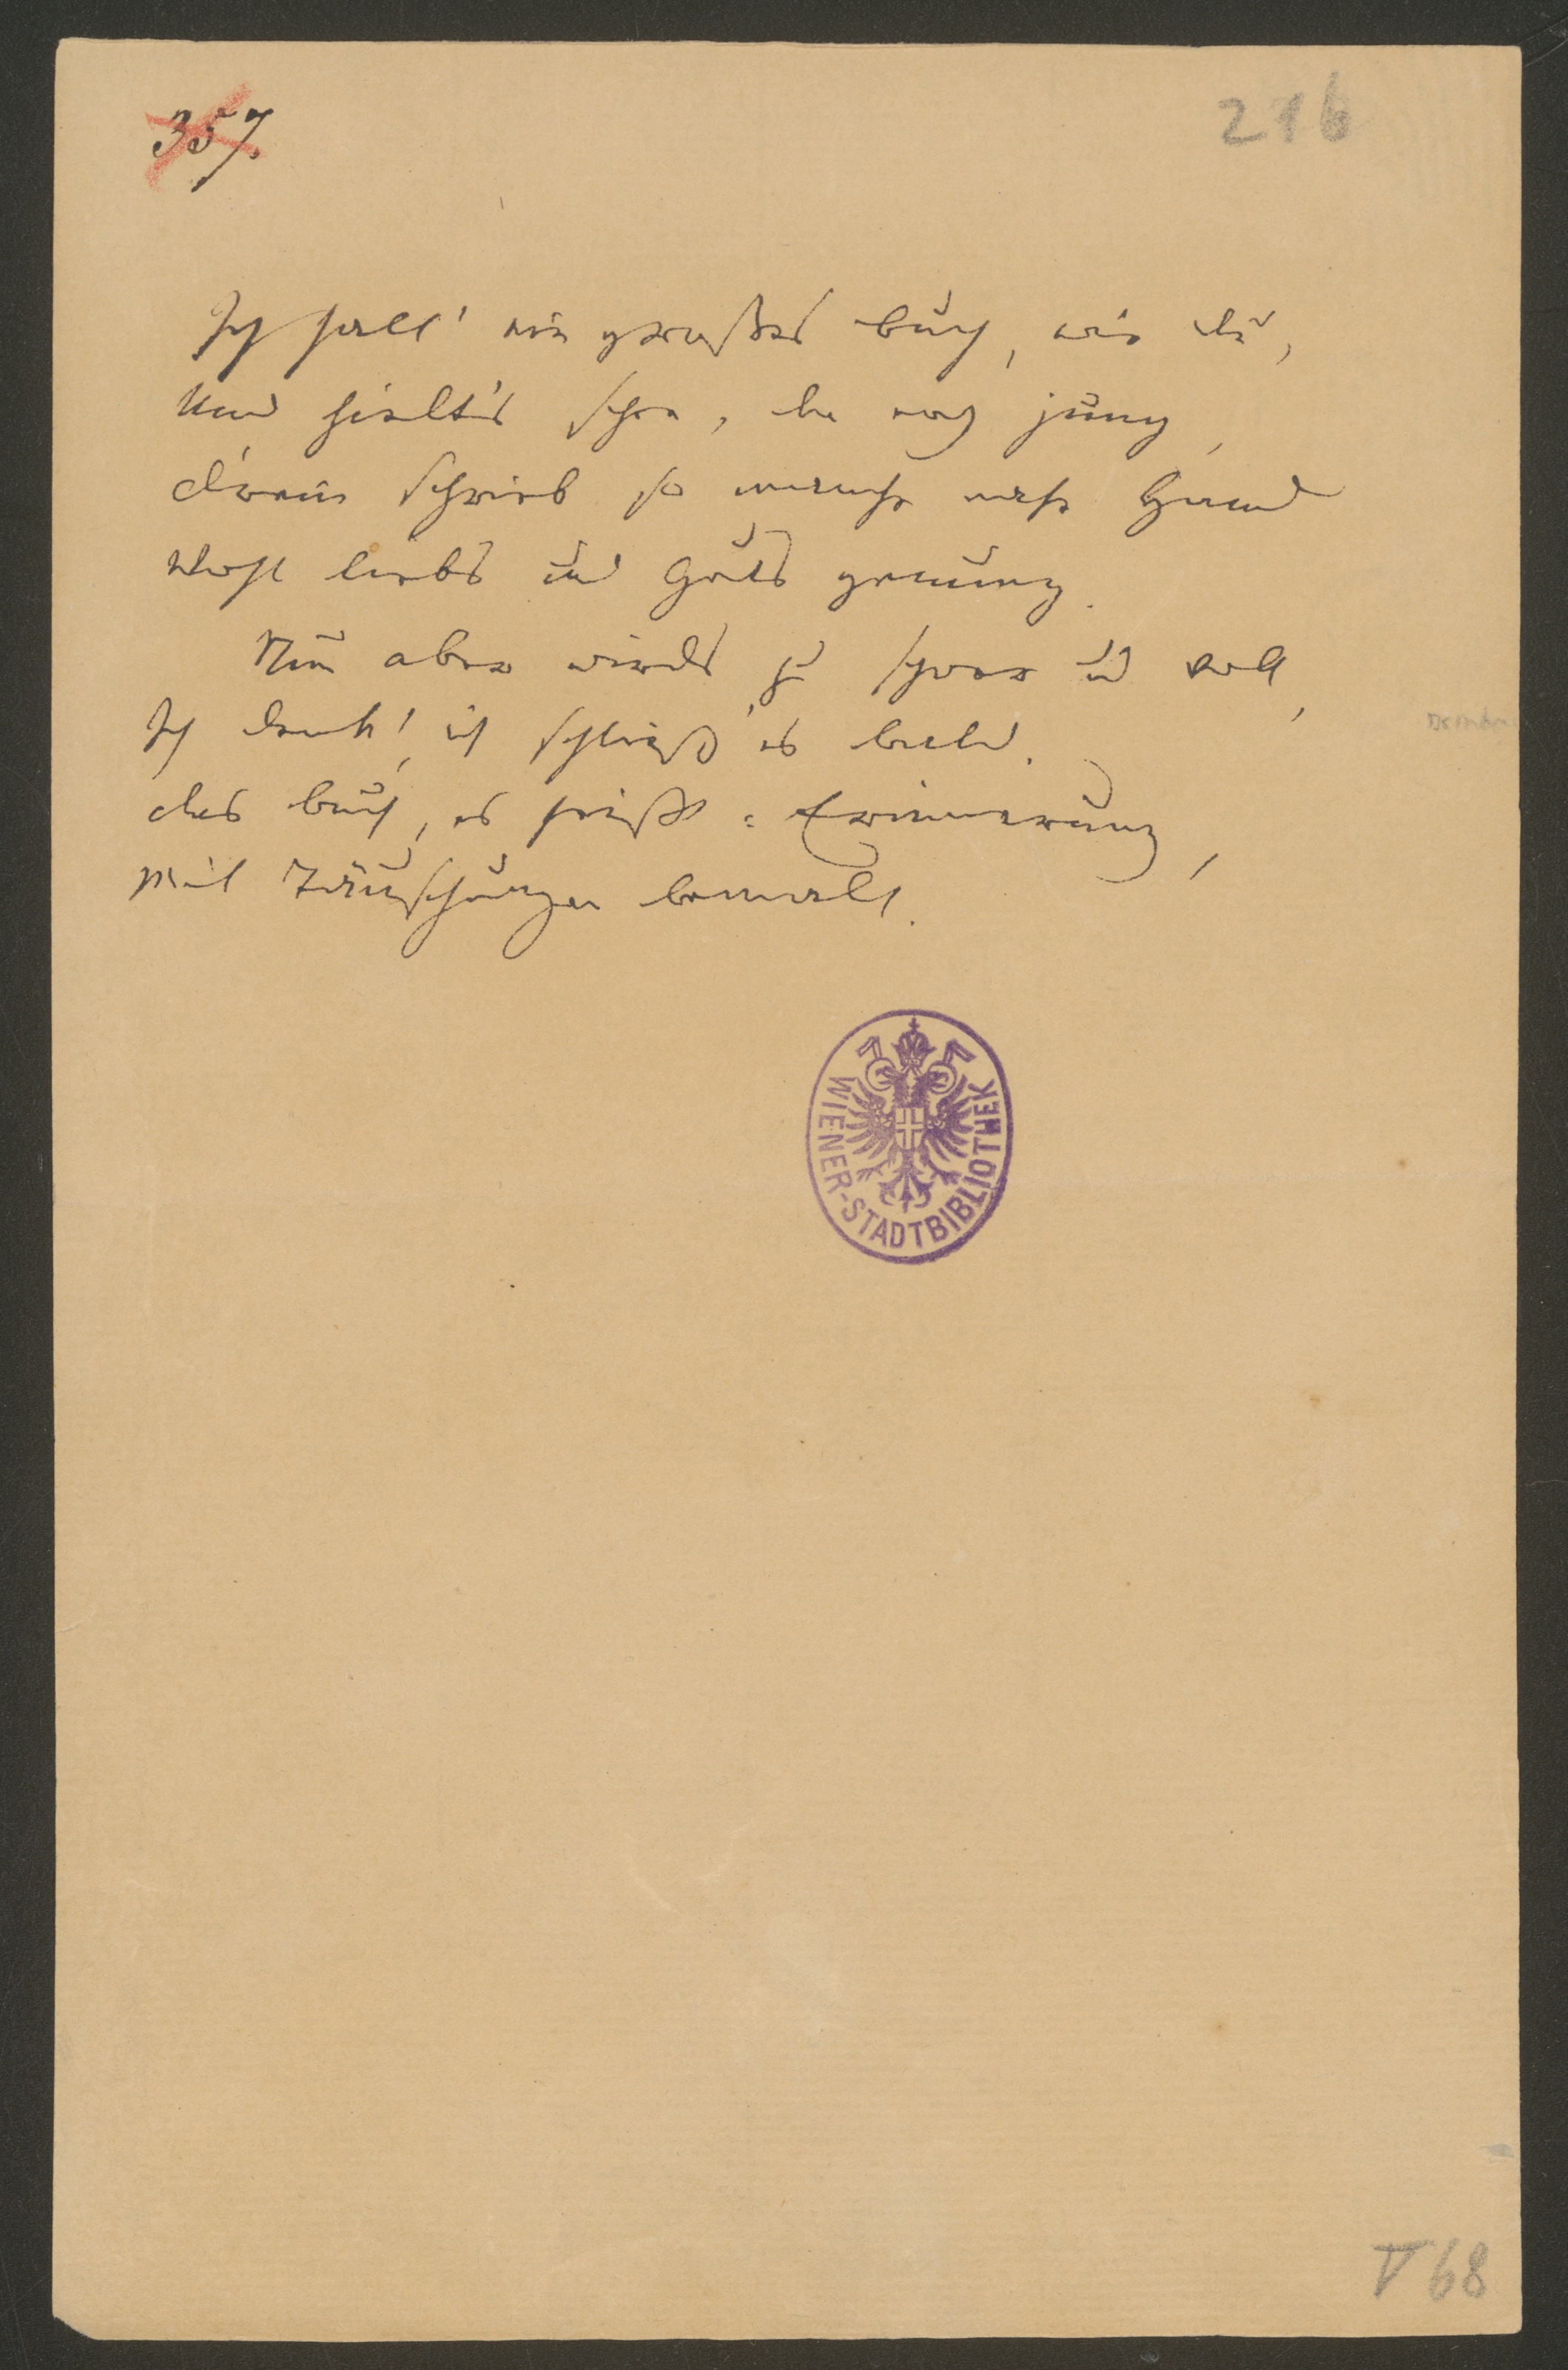 357.
216
Ich halt' ein großes Buch, wie du,
Und hielt's schon, da noch jung,
D'rein schrieb so manche werthe Hand
Wohl Lieb's und Gut's genung.
Nun aber wird's zu schwer und voll,
Ich denk', ich schließ' es bald.
Das Buch, es heißt: Erinnerung,
Mit Täuschungen bemalt.
WIENER-STADTBIBLIOTHEK
V 68